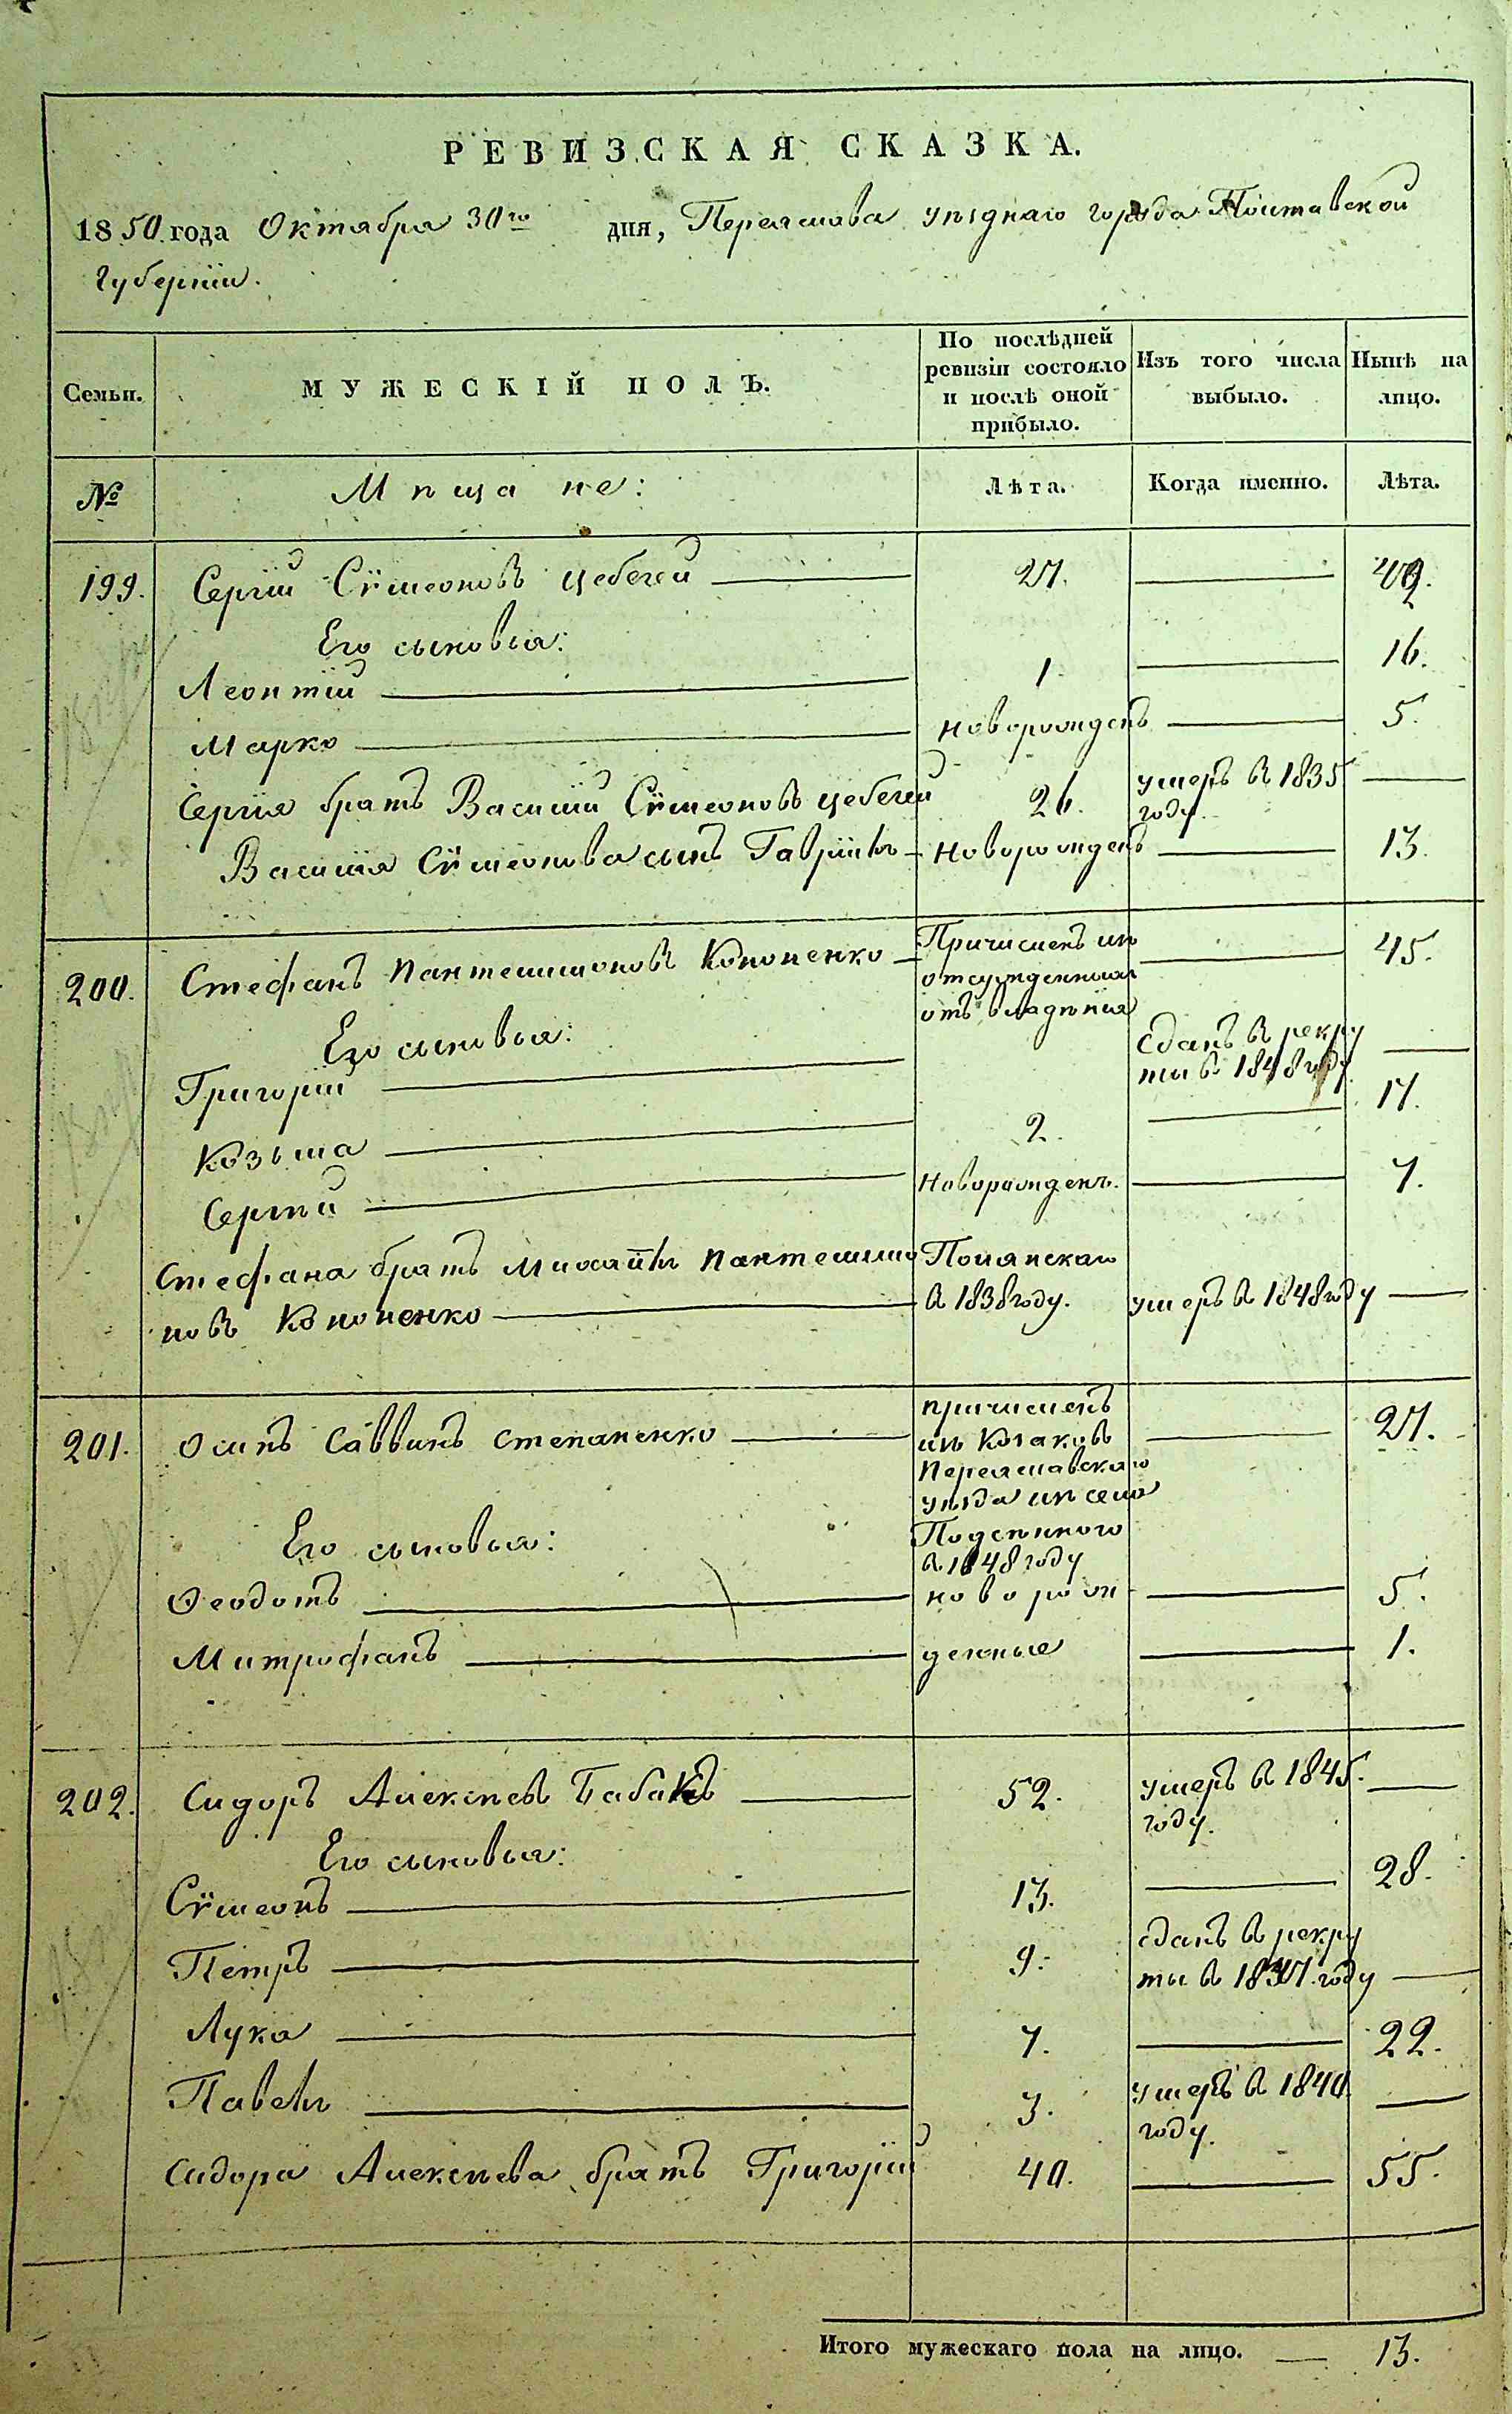 РЕВИЗСКАЯ СКАЗКА.
1850 года Октября 30го дня, Переяслова уѣзднаго города Полтавской
губернiи.
Семьи. МУЖЕСКІЙ ПОЛЪ. По послѣдней ревизіи состояло и послѣ оной прибыло. Изъ того числа выбыло. Нынѣ на лицо.
№ Мѣщане: Лѣта. Когда именно. Лѣта.
199. Сергiй Сѵмеоновъ Цебегей 27. 42.
Его сыновья:
Леонтiй 1. 16.
Марко новорожденъ 5.
Сергiя братъ Василiй Сѵмеоновъ Цебегей 26. умеръ въ 1835 году.
Василiя Сѵмеонова сынъ Гаврiилъ Новорожденъ 13.
200. Стефанъ Пантелимоновъ Кононенко Причисленъ изъ 45.
отсужденныхъ
отъ владѣнiя
Его сыновья:
Григорiй Сданъ въ рекру
ты въ 1848 году
Козьма 2. 17.
Сергѣй Новорожденъ. 7.
Стефана братъ Михаилъ Пантелимо
новъ Кононенко в 1838 году. умеръ въ 1848 году
201. Осипъ Саввинъ Степаненко причисленъ 27.
изъ Козаковъ
Переяславскаго
уѣзда изъ села
в 1848 году
Его сыновья:
Ѳеодотъ новорож 5.
Митрофанъ денные 1.
202. Сидоръ Алексѣевъ Бабакъ 52. умеръ въ 1845.
году.
Его сыновья:
Сѵмеонъ 13. 28.
Петръ 9. сданъ въ рекру
ты въ году
Лука 7. 22.
Павелъ 3. умеръ въ 1840.
году.
Сидора Алексѣева братъ Григорiй 40. 55.
Итого мужескаго пола на лицо. 13.